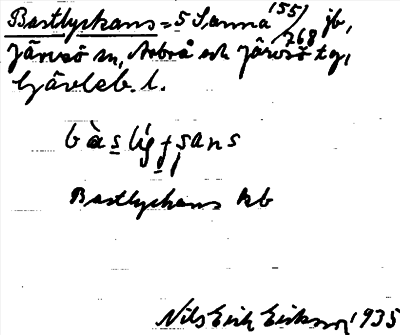 Bastlyckans = 5 Sanna 155/268 jb,
Järvsö sn, Arbrå och Järvsö tg,
Gävleb. l.
bàsligsans
Bastlyckans kb
Nils Erik Eriksson 1935